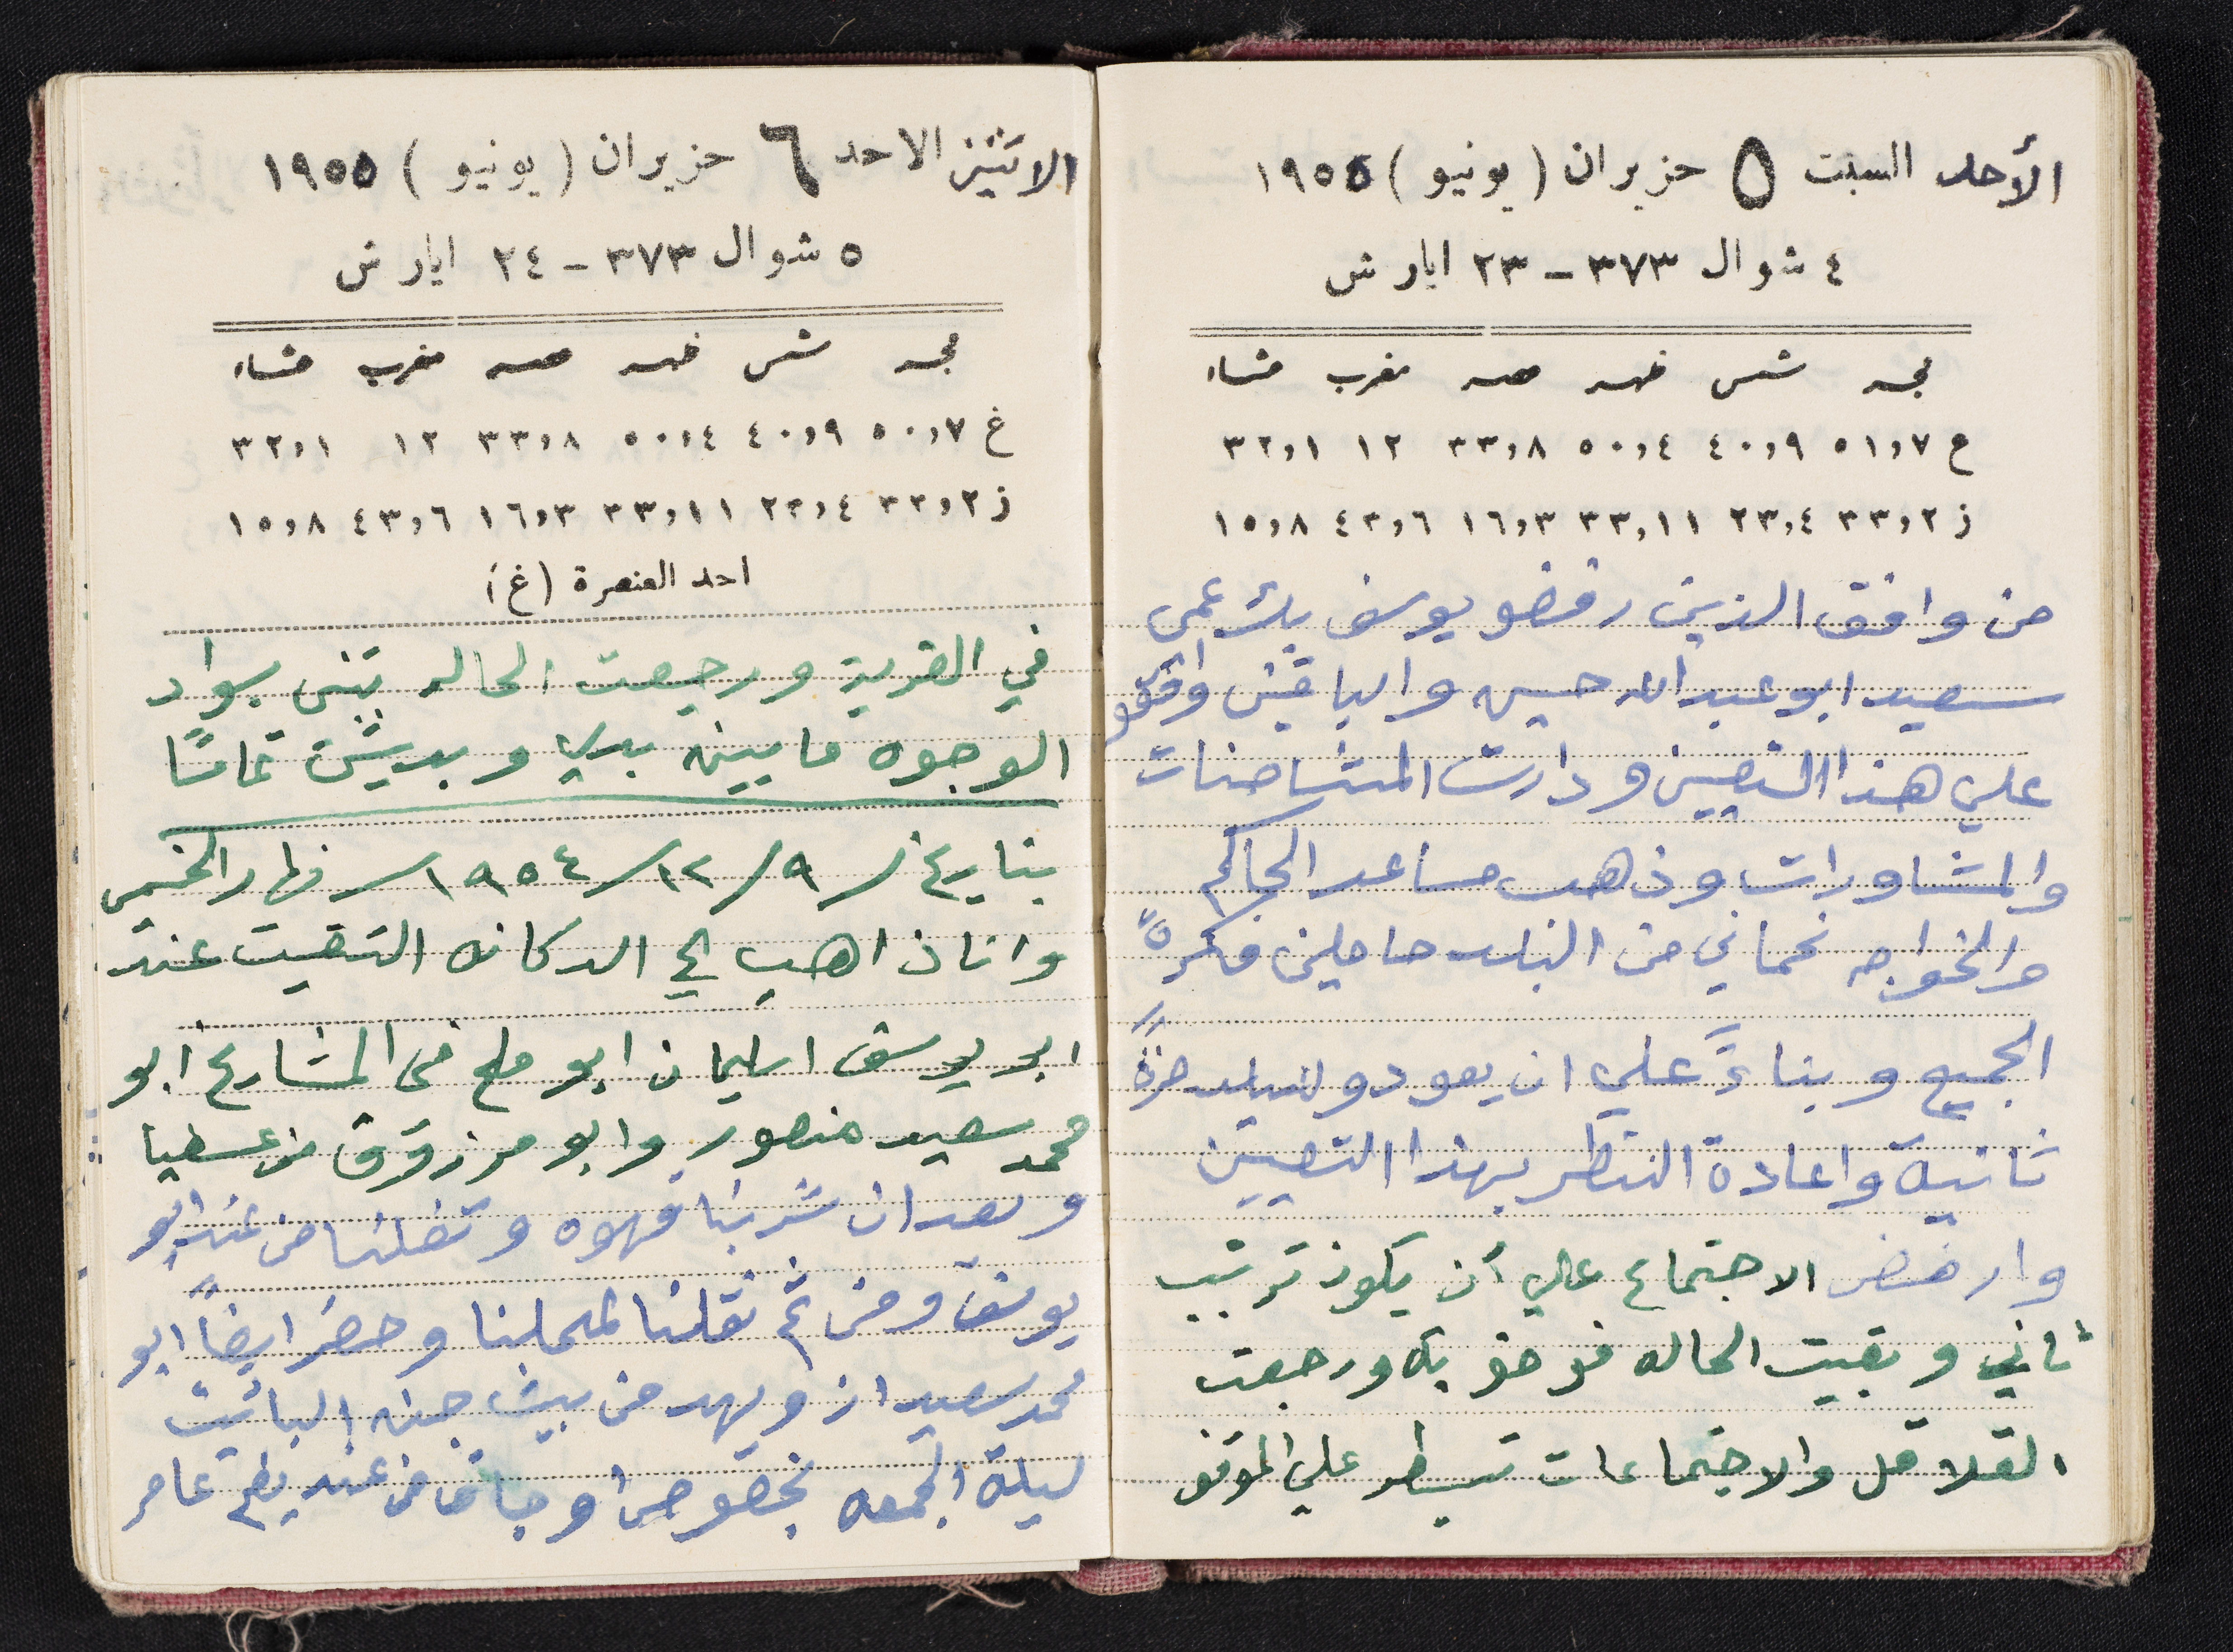 الأحد السبت ٥ حزيران (يونيو) ١٩٥٥
٤ شوال ٣٧٣ - ٢٣ ايار ش
فجر شمس ظهر عصر مغرب عشاء
غ ٥١,٧ ٤٠,٩ ٥٠,٤ ٣٣,٨ ١٢ ٣٢,١
ز ٣٣,٢ ٢٣,٤ ٣٣,١١ ١٦,٣ ٤٣,٦ ١٥,٨
من وافق الذين رفضو يوسف بك عمي
سعيد ابو عبدالله حسين والباقين وافقو
علي هذا التعيين ودارت المشاحنات
والمشاورات وذهب مساعد الحاكم
والخواجه نحماني من البلد حاملين فكرة
الجميع وبناءً علي ان يعودو للبلد مرةً
ثانية واعادة النظر بهذا التعيين
وارفض الاجتماع علي أن يكون ترتيب
ثاني وبقيت الحاله فوضويه ورجعت
القلاقل والاجتماعات تسيطر علي الموقف
الاثنين الاحد ٦ حزيران (يونيو) ١٩٥٥
٥ شوال ٣٧٣ - ٢٤ ايار ش
فجر شمس ظهر عصر مغرب عشاء
غ ٥٠,٧ ٤٠,٩ ٥٠,٤ ٣٣,٨ ١٢ ٣٢,١
ز ٣٣,٢ ٢٣,٤ ٣٣,١١ ١٦,٣ ٤٣,٦ ١٥,٨
احد العنصرة (غ)
في القرية ورجعت الحاله بتني سواد
الوجوه ما بين بدي وبديش تماماً
بتاريخ ٩/١٢/١٩٥٤ نهار الخميس
وانا ذاهب الي الدكانه التقيت عند
ابو يوسف اسليمان ابو ملح في المشارع ابو
محمد سعيد منصور وابو مرزوق من عسفيا
وبعد ان شربنا قهوه وتفلنا من عند ابو
يوسف ومن ثم نقلنا لمحلنا وحضر ايضاً ابو
محمد سعيد از ويهد من بيت جن البائيت
ليلة الجمعه بخصوص اوجاق من عند يضم عامر